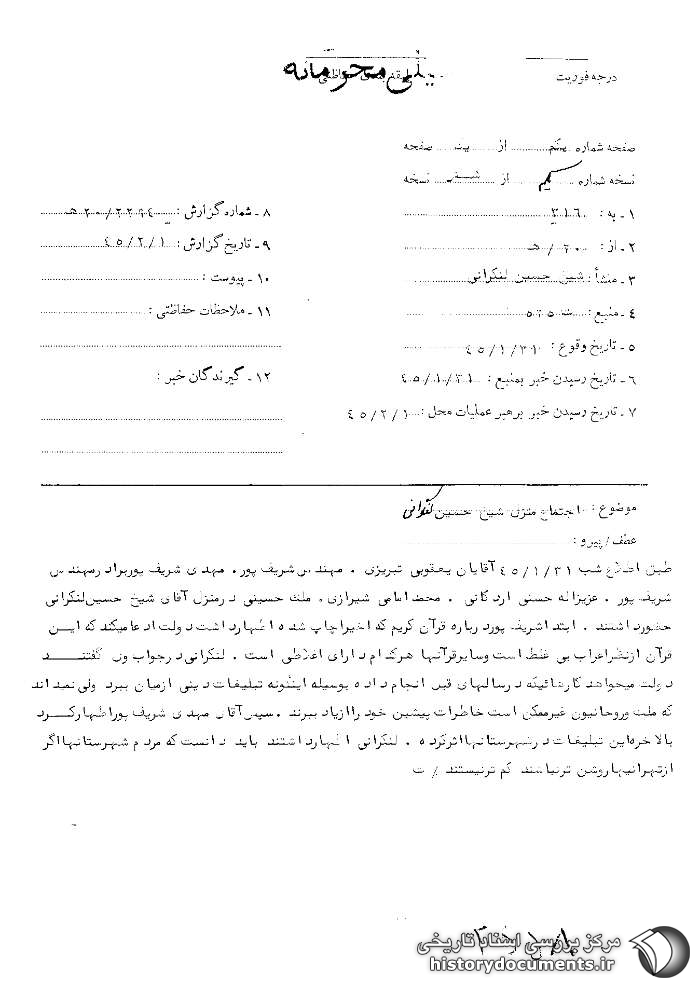 درجه فوریت
خیلی محرمانه
صفحه شماره یکم از یک صفحه
نسخه شماره یکم از شش نسخه
۱ـ به : ۳۱۶
۲ـ از : ۲۰ / هـ
۳ـ منشأ : شیخ حسین لنکرانی
۴ـ منبع :
۵ـ تاریخ وقوع : ۴۵/۱/۳۱
۶ـ تاریخ رسیدن خبر بمنبع : ۴۵/۱/۳۱
۷ـ تاریخ رسیدن خبر برهبر عملیات محل : ۴۵/۲/۱
۸ـ شماره گزارش : ۲۲۹۴/ ۲۰ هـ
۹ـ تاریخ گزارش : ۴۵/۲/۱
۱۰ـ پیوست :
۱۱ـ ملاحظات حفاظتی :
۱۲ـ گیرندگان خبر :
موضوع : اجتماع منزل شیخ حسین لنکرانی
عطف / پیرو :
طبق اطلاع شب ۴۵/۱/۳۱ آقایان یعقوبی تبریزی . مهندس شریف پور. مهدی شریف پور برادر مهندس
شریف پور . عزیزاله حسنی اردکانی . محمد امامی شیرازی. ملک حسینی در منزل آقای شیخ حسین لنکرانی
حضور داشتند . ابتدا شریف پور درباره قرآن کریم که اخیرا چاپ شده اظهار داشت دولت ادعا میکند که این
قرآن از نظر اعراب بی غلط است و سایر قرآنها هر کدام دارای اغلاطی است . لنکرانی در جواب وی گفتند
دولت میخواهد کارهائیکه در سالهای قبل انجام داده بوسیله اینگونه تبلیغات دینی از میان ببرد ولی نمیداند
که ملت و روحانیون غیر ممکن است خاطرات پیشین خود را از یاد ببرند . سپس آقای مهدی شریف پور اظهار کرد
بالاخره این تبلیغات در شهرستانها اثر کرده . لنکرانی اظهار داشتند باید دانست که مردم شهرستانها اگر
از تهرانیها روشن تر نباشند کم تر نیستند / ت
مرکز بررسی اسناد تاریخی
historydocuments.ir